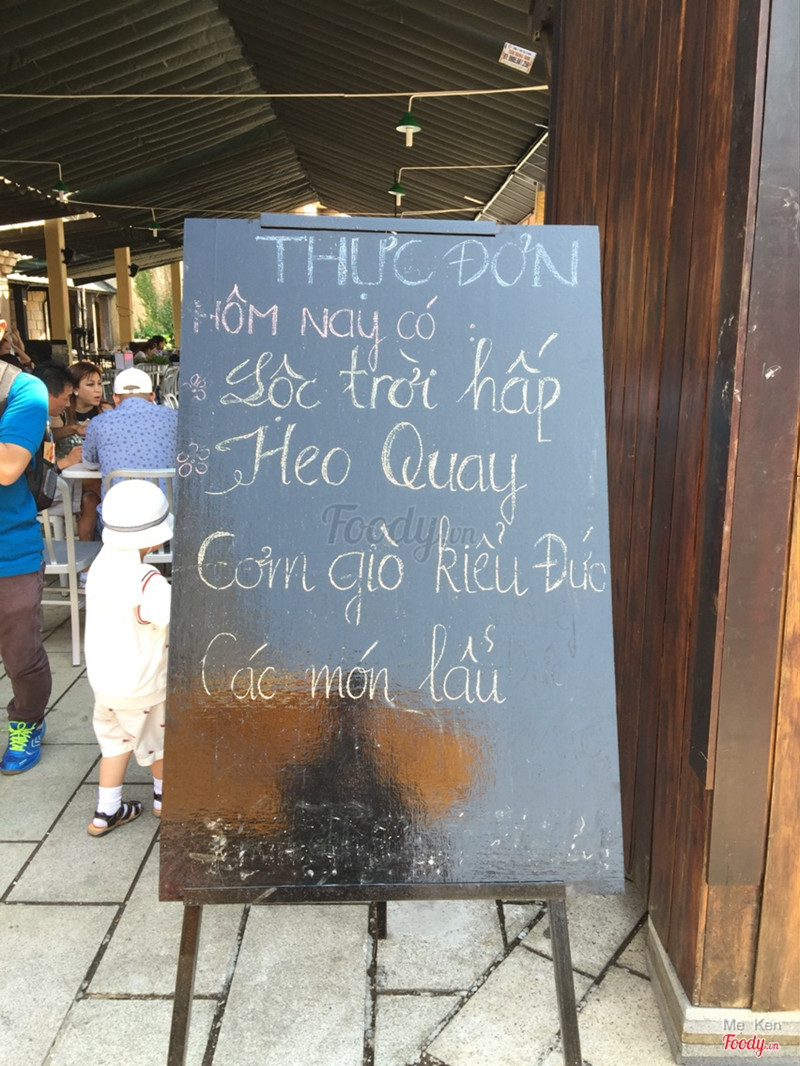 THỰC ĐƠN
HÔM NAY CÓ :
Lộc trời hấp
Heo Quay
Cơm giò kiểu Đức
Các món lẩu
Foody.vn
Mẹ Ken
Foody.vn